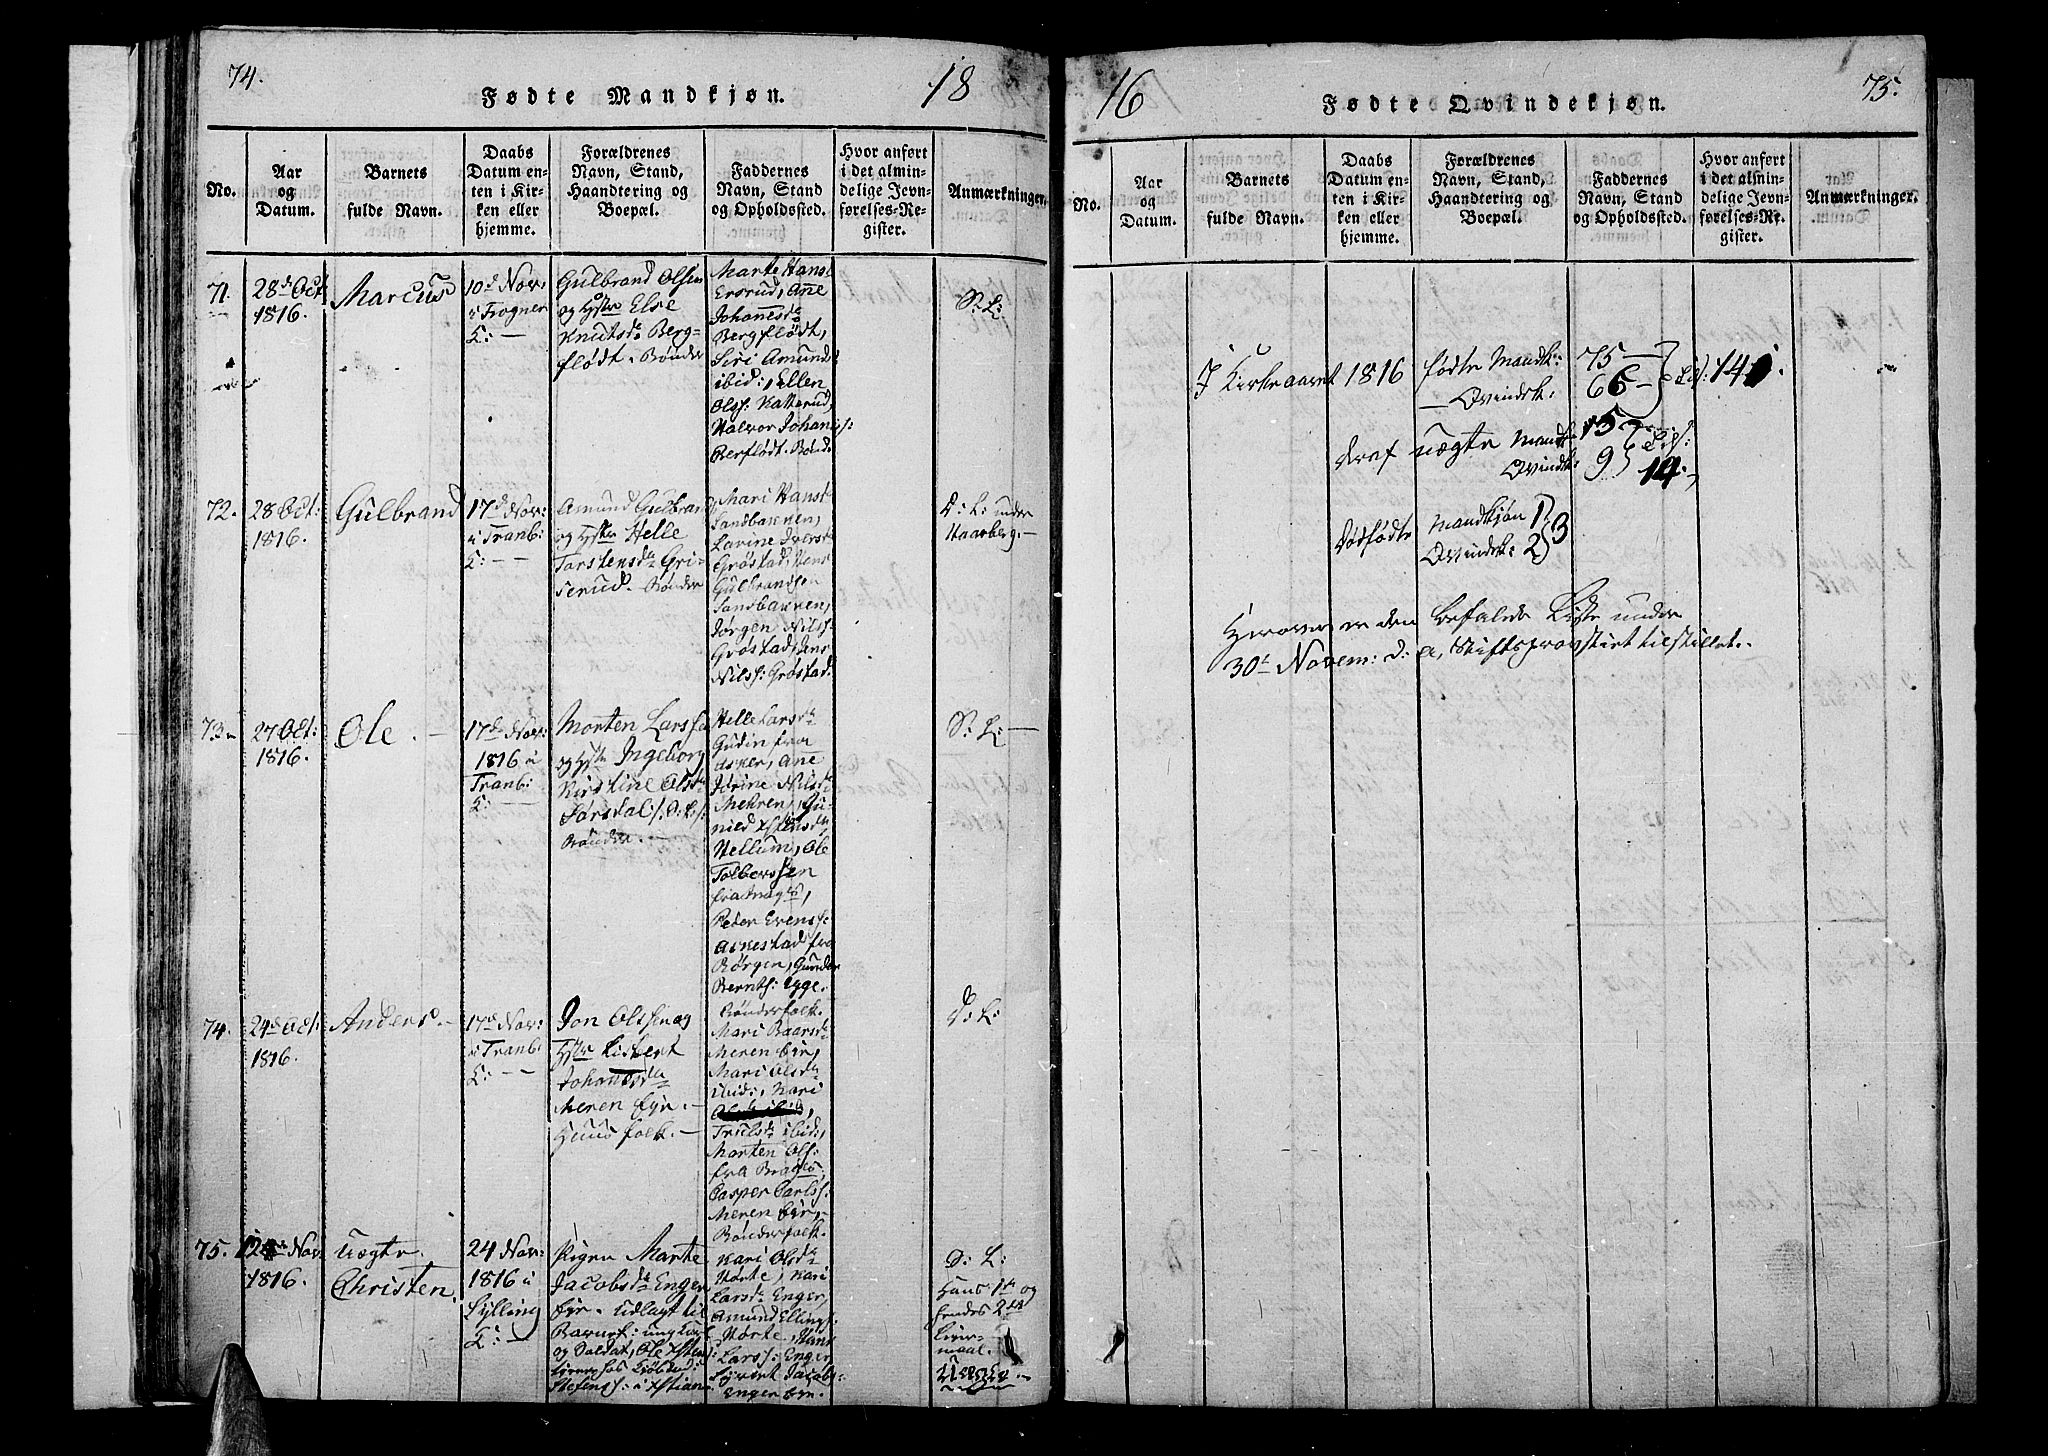 74.
Fødte Mandkjøn.
18
No.
Aar
og
Datum.
Barnets
fulde Navn.
Daabs
Datum en-
ten i Kir-
ken eller
hjemme.
Forældrenes
Navn, Stand,
Haandtering og
Boepæl.
Faddernes
Navn, Stand
og Opholdssted.
Hvor anført
i det almin-
delige Jevn-
førelses-Re-
gister.
Anmærkninger.
71.
28de Oct
1816.
Marcus
10de Nov:
i Frogner
K:
Gulbrand Olsen
og Hstr Else
Knutsdr Berg-
flødt. Bønder
Marte Hansd
Ersrud, Anne
Johanesdr
Bergflødt,
Siri Amunds
ibid:, Ellen
Olss: Katterud,
Halvor Johanes:
Berflødt. Bønd
S: L:
72.
28 Oct:
1816.
Gulbrand
17de Nov:
i Tranb:
K:
Amund Gulbrand
og Hstr Helle
Torstensdr Gri-
serud. Bønder
Mari Hansd
Sandbakken,
Lavine Iversd
Grøstad, Hens
Gulbrandsen
Sandbakken,
Jørgen Nilss:
Grøstad, Jens
Nilss: Grøstad.
D: L: under
Haarberg.
73.
27 Oct:
1816.
Ole.
17de Nov:
1816 i
Tranb:
K:
Morten Larssen
og Hstr Ingeborg
Kirstine Olsdr
Sørsdal /: D: L: /:
Bønder.
Helle Larsdr
Gudin fra
Asker, Ane
Jørine Nilsdr
Mehren, Gu-
nild
Hellum, Ole
Tolberssen
fra
Peder Evenss:
Aknestad fra
Børgen, Gunder
Berntss: Egge.
Bønderfolk.
S: L:
74.
24de Oct:
1816.
Anders.
17de Nov:
i Tranb:
K:
Jon Olssen og
Hstr Lisbert
Johanesdr
Meren Eje.
Huusfolk.
Mari Baarsdr
Meren Eje,
Mari Olsdr
ibid:, Kari
Trulsdr ibid:,
Morten Ols:
fra Bragnes,
Casper Carlss:
Meren Eje,
Bønderfolk.
D: L:
75.
Nov
1816.
Uægte
Christen.
24 Nov:
1816 i
Sylling
K:
Pigen Marte
Jacobsdr Enger
Eje. Udlagt til
Barnef: ung Karl
og Soldat, Ole
Stefenss: i Xstiania
Kari Olsdr
Hørte, Kari
Larsdr Enger,
Amund Ellings:
Hørte, Hans
Larss: Enger,
Syvert Jacobs
Enger Eje.
S: L:
Hans 1ste og
hendes 2den
Leier-
maal.
Uægte.
16
Fødte Qvindekjøn.
75.
No.
Aar
og
Datum.
Barnets
fulde Navn.
Daabs
Datum en-
ten i Kir-
ken eller
hjemme.
Forældrenes
Navn, Stand,
Haandtering og
Boepæl.
Faddernes
Navn, Stand
og Opholdssted.
Hvor anført
i det almin-
delige Jevn-
førelses-Re-
gister.
Anmærkninger.
I Kirkeaaret 1816 fødte Mandk: 75
Qvindek: 66
deraf uægte Mandk: 5
Qvindek: 9
14.
Dødfødte Mandkjøn 1
Qvindek: 2
3
Herover er den befalede Liste under
30te Novem: d: a, Stiftsprovstiet tilstillet.